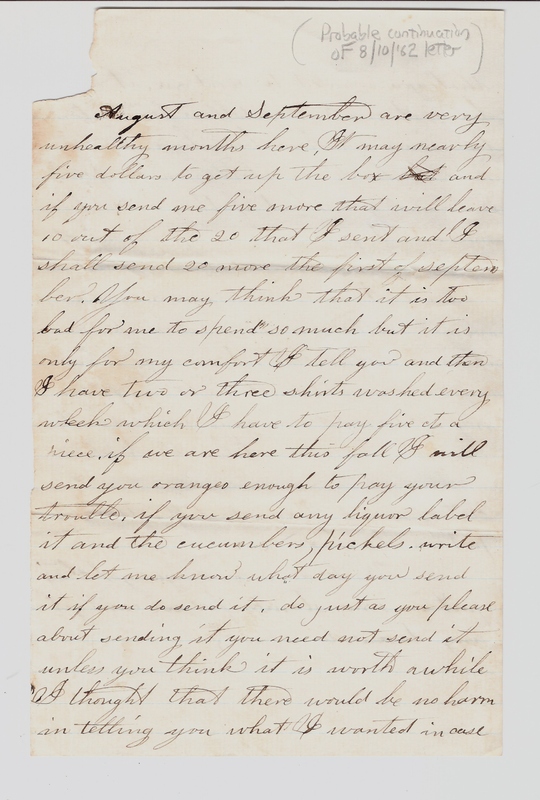 (Probable continuation
of 8/10/'62 letter)
August and September are very
unhealthy months here, It may nearly
five dollars to get up the box and
if you send me five more that will leave
10 out of the 20 that I sent and I
shall send 20 more the first of septem
ber. You may think that it is too
bad for me to spend so much but it is
only for my comfort I tell you and then
I have two or three shirts washed every
wheek which I have to pay five cts a
piece. if we are here this fall I will
send you oranges enough to pay your
trouble. if you send any liquor label
it and the cucumbers, pickels. write
and let me know what day you send
it if you do send it. do just as you please
about sending it you need not send it
unless you think it is worth awhile
I thought that there would be no harm
in telling you what I wanted in case